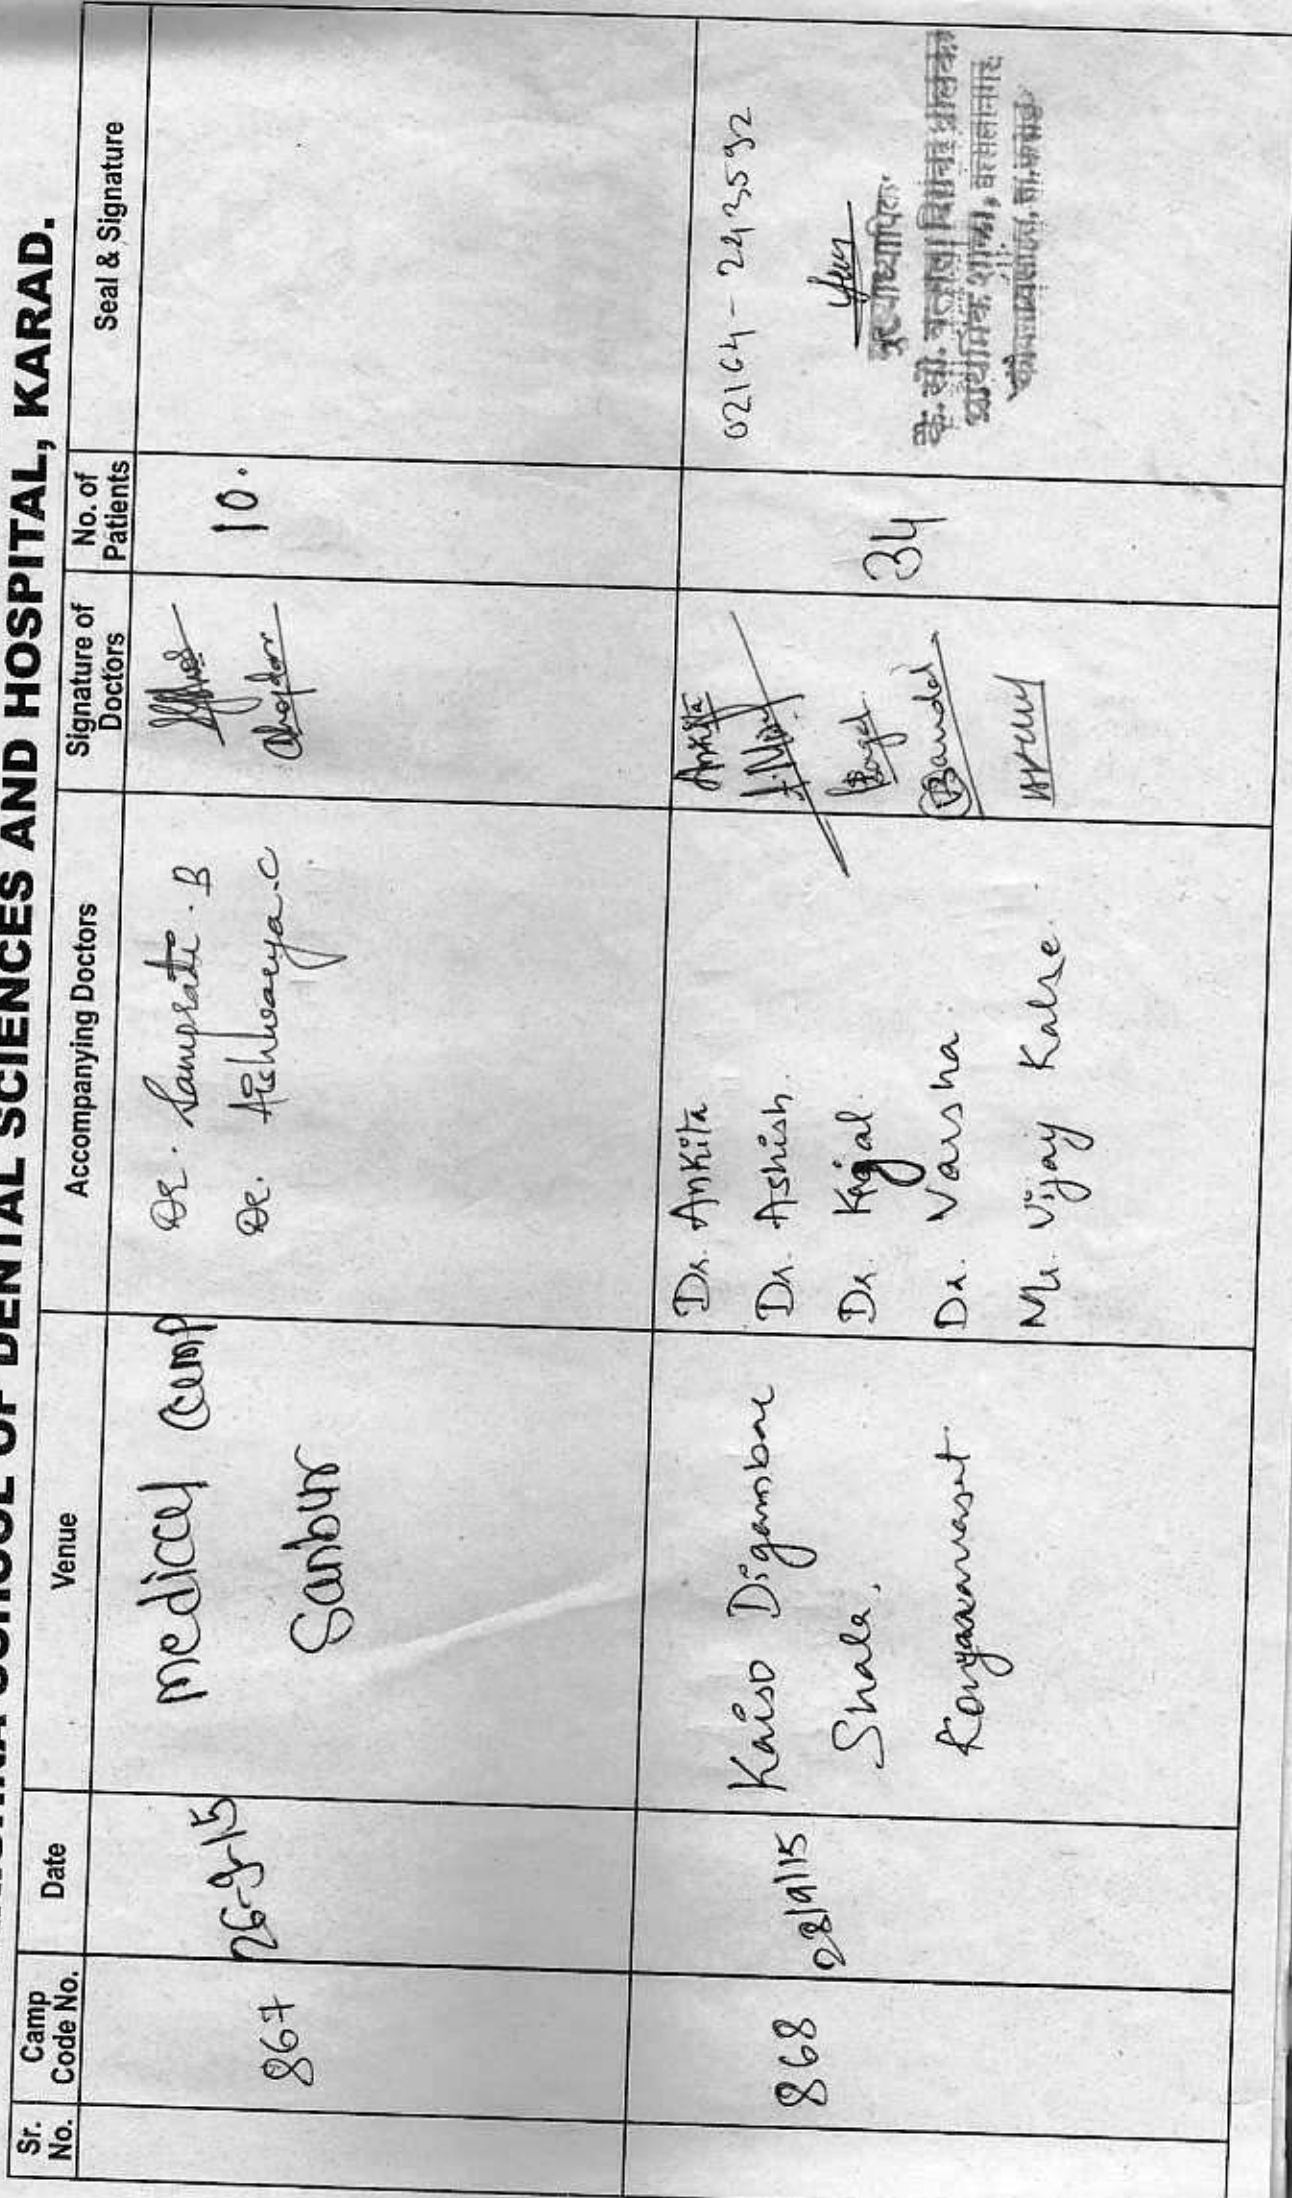 SCHOOL OF DENTAL SCIENCES AND HOSPITAL, KARAD.
Sr. No.
Camp Code No.
Date
Venue
Accompanying Doctors
Signature of Doctors
No. of Patients
Seal & Signature
867
26-9-15
Medical Camp
Sanbur
Dr. Samprati. B
Dr. Aishwarya.C
10.
868
28/9/15
Kaiso Digambar
Shala,
Dr. Ankita
Dr. Ashish.
Dr. Kajal.
Dr. Varsha.
Mr. Vijay Kalse.
Ankita
34
02164-243592